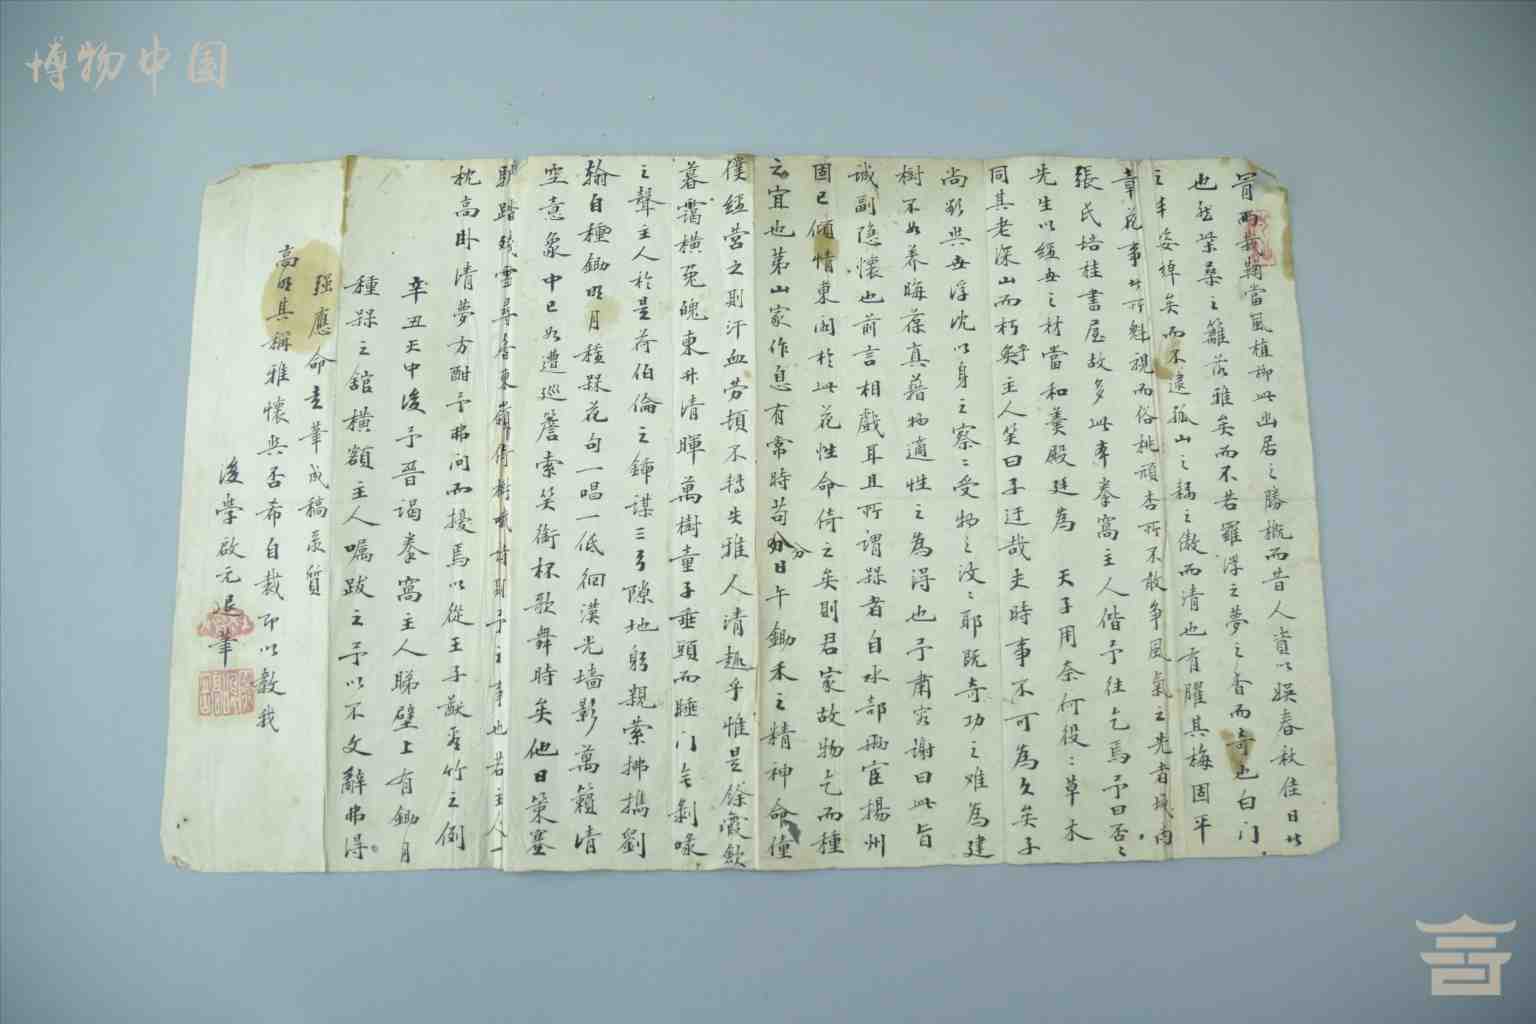 博物中国
胃雨栽鞠當風植柳此幽居之勝概而昔人資以娛春秋佳日者
也然柴桑之籬落雅矣而不若羅浮之夢之香而奇也白门
之丰姿掉矣而不逮孤山之鶴之傲而清也有臞其梅固平
章花事者所魁視而俗桃頑杏所不敢争風氣之先者城南
張氏培桂書屋故多此本拳窩主人偕予往乞焉予曰否々
先生以經世之材當和羹殿廷為 天子用奈何役々草木
同其老深山而朽矣予主人笑曰子迂哉夫時事不可為久矣予
尚欲與世浮沈以身之察々受物之汶々耶既奇功之难為建
樹不如养晦葆真藉物適性之為得也予肅容謝曰此旨
诚副隐懷也前言相戲耳且所谓槑者自水部兩宦揚州
固已傾情東阁於此花性命倚之矣則君家故物乞而種
之宜也第山家作息有常時苟分日午鋤禾之精神命僮
僕經营之則汗血劳頓不轉失雅人清趣乎惟是餘霞歛
暮靄横兔魄東升清暉萬樹童子垂頭而睡门無剥啄
之聲主人於是荷伯倫之鍤谋三弓隙地躬親蒙拂攜劉
翰自種鋤明月種槑花句一唱一低徊漠光墙影萬籟清
空意象中已如遭巡簷索笑銜杯歌舞時矣他日策蹇
驴踏殘雪尋香東嶺倚樹哦詩則予之事也若主人一
枕高卧清夢方酣予弗问而擾焉以從王子猷看竹之例
辛丑天中後予晋谒拳窩主人睇壁上有鋤月
種槑之舘横額主人嘱跋之予以不文辭弗得
强應命走筆成稿录質
高明其稱雅懷與否希自裁即以教我
後學啟元退筆